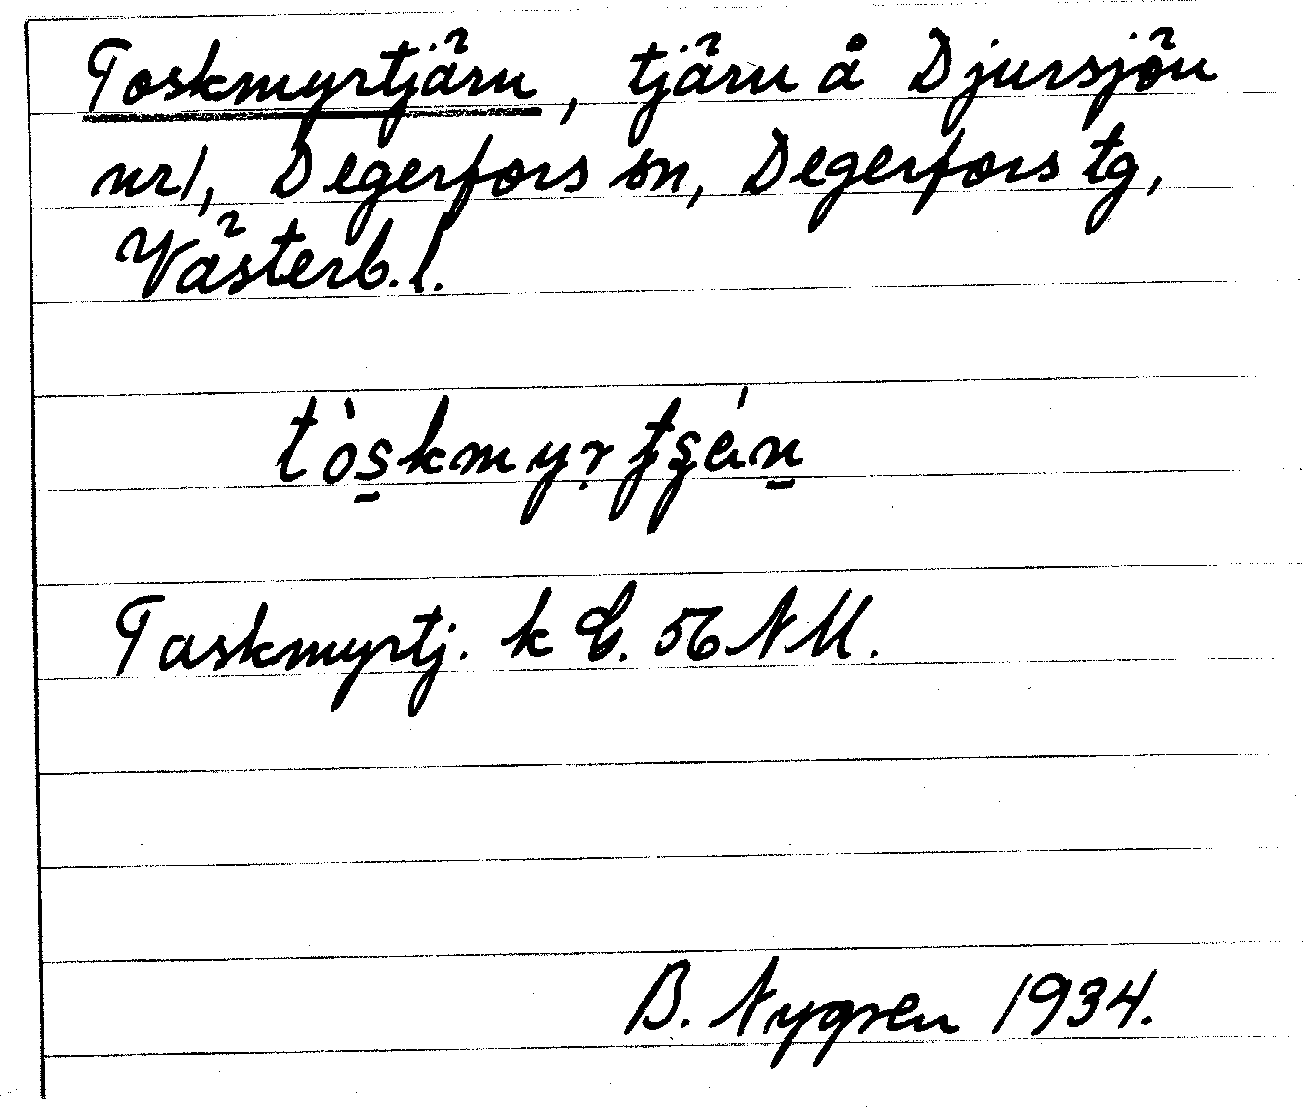 Toskmyrtjärn, tjärn å Djursjön
nr1, Degerfors sn, Degerfors tg,
Västerb.l.
tòs̱kmyṛtʂén̠
Taskmyrtj. k E. 56 NM.
B. Nygren 1934.